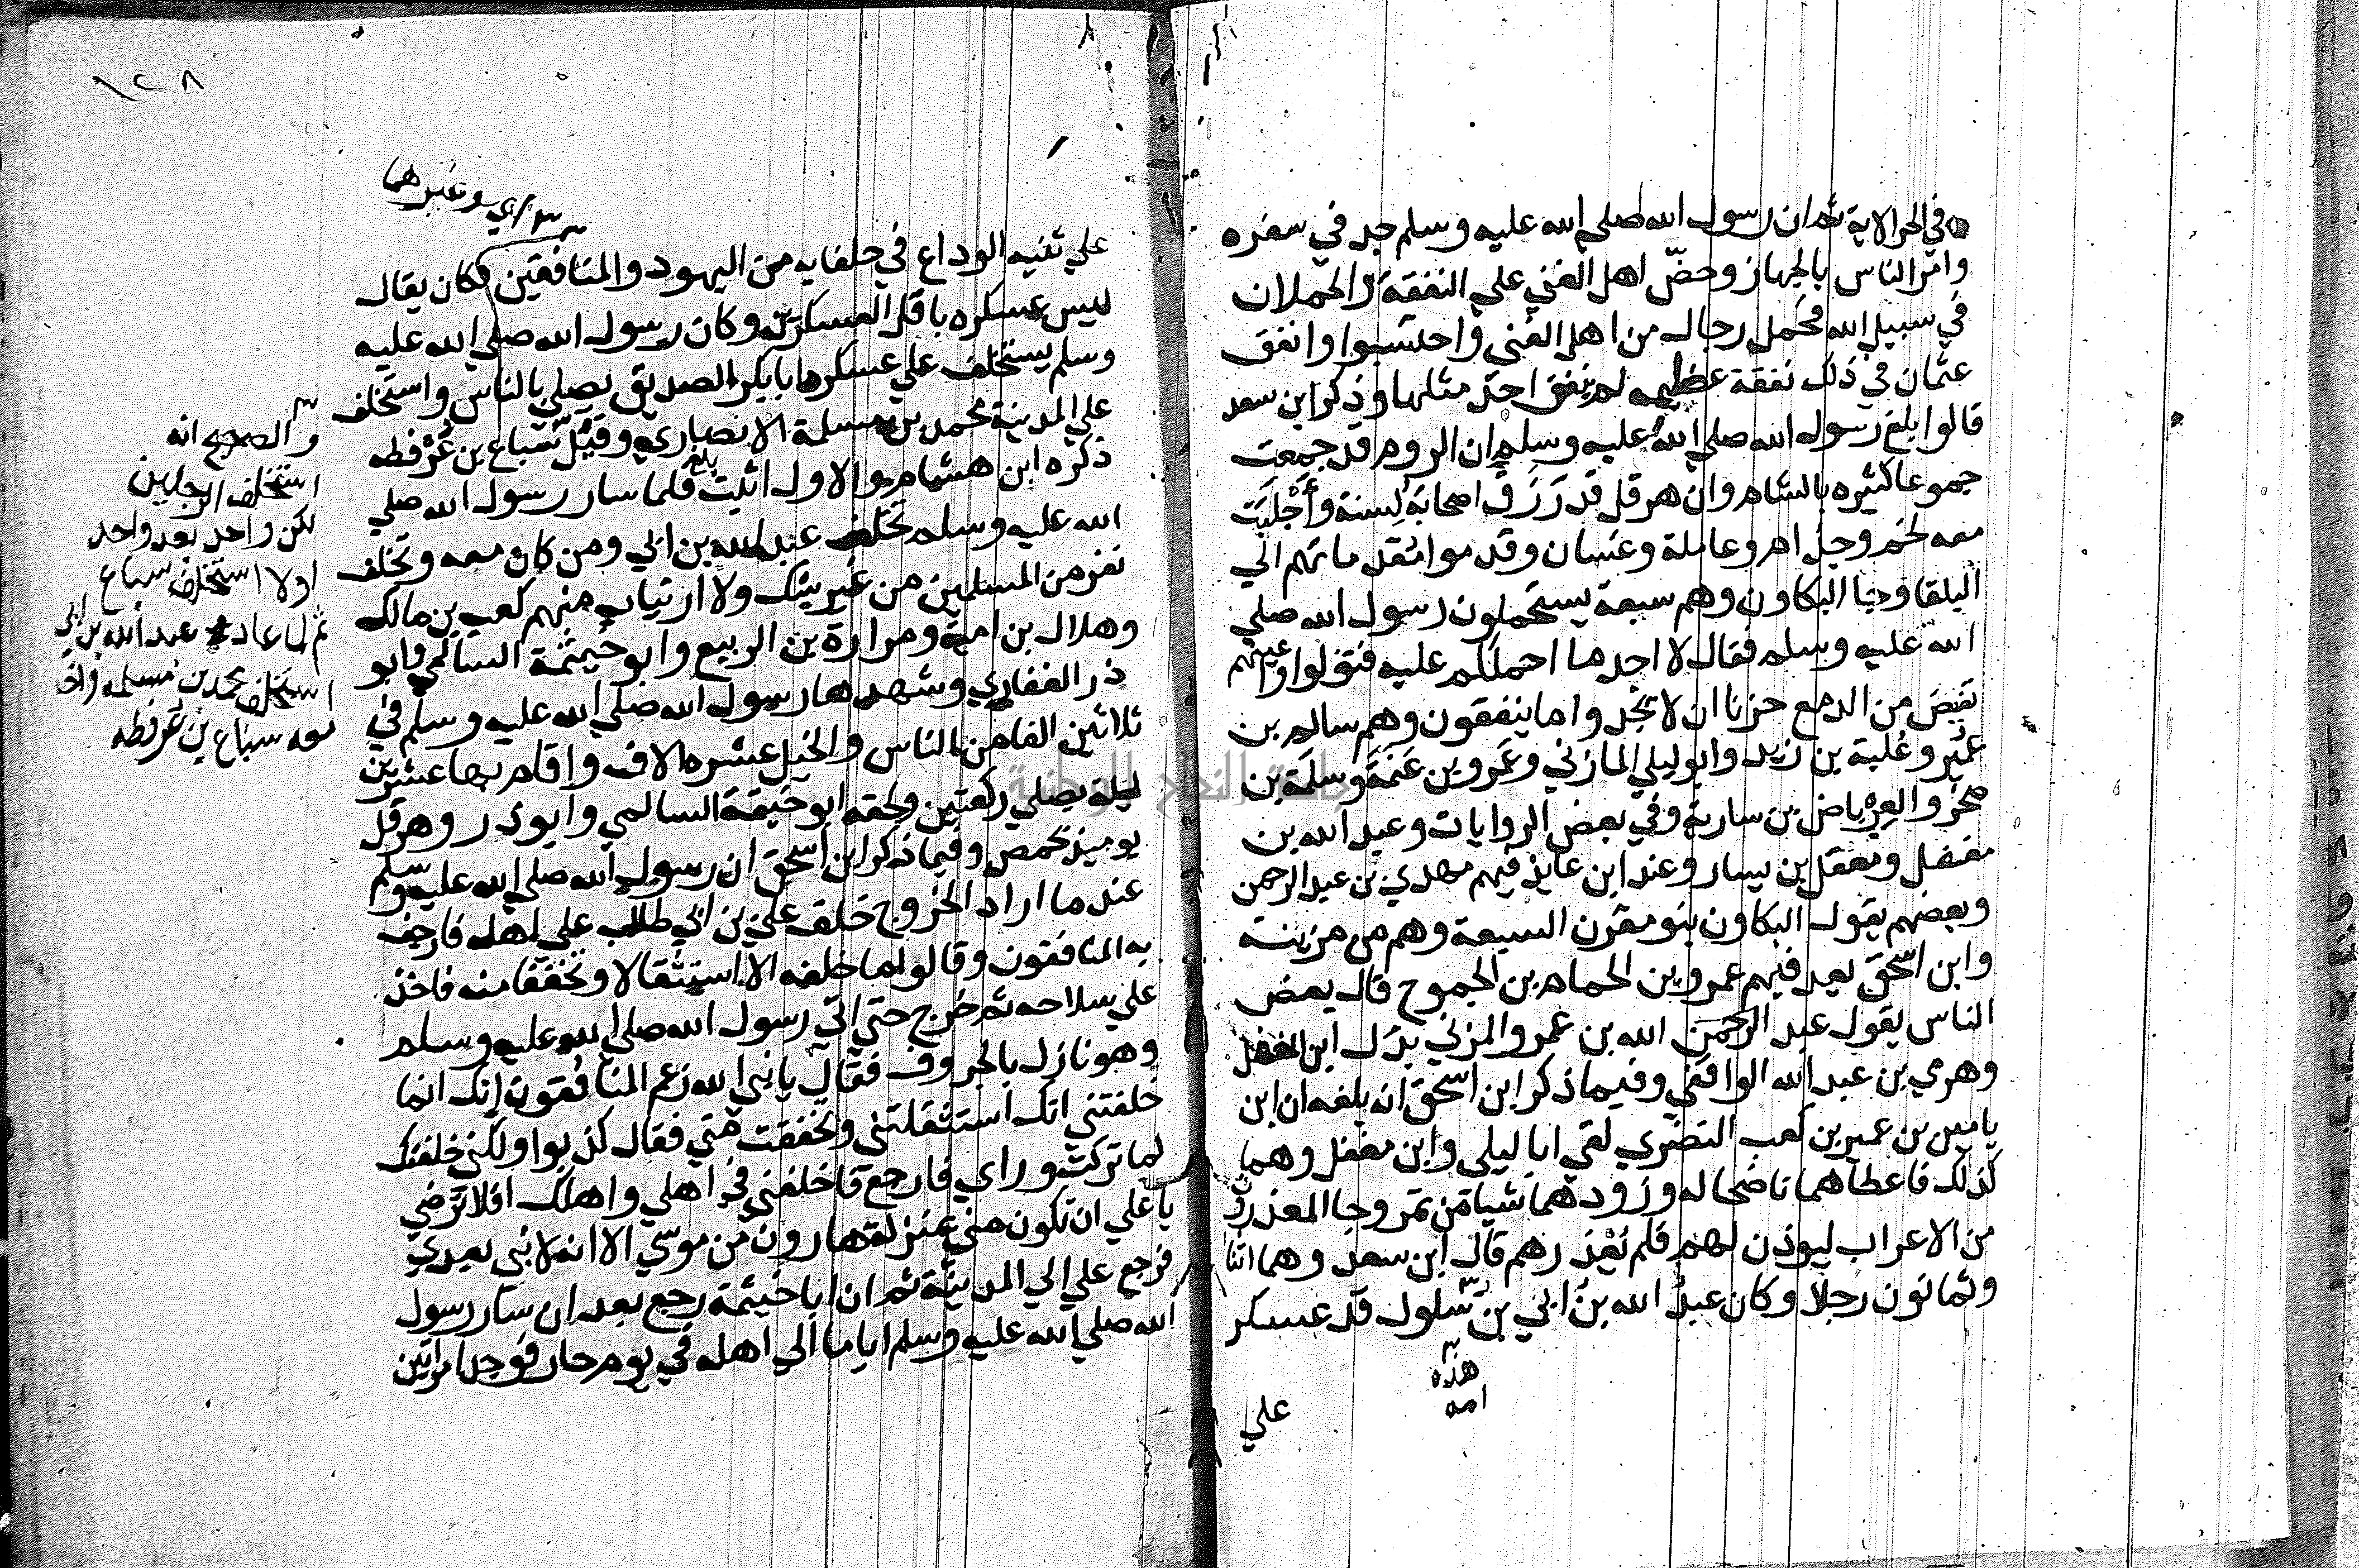 في الحر الاية ثم ان رسول الله صلي الله عليه وسلم جد في سفره
وامر الناس بالجهاز وحضّ اهل الغني علي النفقة والحملان
في سبيل الله فحمل رجال من اهل الغني واحتسبوا وانفق
عثمان في ذلك نفقة عظيمه لم ينفق احد مثلها وذكر ابن سعد
قالوا بلغ رسول الله صلي الله عليه وسلم ان الروم قد جمعت
جموعا كثيره بالشام وان هرقل قد رزق اصحابه لسنة وأجلبت
معه لخم وجذام وعاملة وغسان وقدموا مقدماتهم الي
البلقا وجا البكاون وهم سبعة يستحملون رسول الله صلي
الله عليه وسلم فقال لا اجد ما احملكم عليه فتولوا واعينهم
تفيض من الدمع حزنا ان لا يجدوا ما ينفقون وهم سالم بن
عمير وعلبة بن زيد وابو ليلي المازني وعمرو بن عنمة وسلمة بن
صخر والعرباض بن سارية وفي بعض الروايات وعبد الله بن
مغفل ومعقل بن يسار وعند ابن عايذ فيهم مهدي بن عبد الرحمن
وبعضهم يقول البكاون بنو مقرن السبعة وهم من مزينة
وابن اسحق يعد فيهم عمرو بن الحمام بن الجموح قال بعض
الناس يقول عبد الله بن عمرو المزني بدل ابن المغفل
وهرمي بن عبد الله الواقفي وفيما ذكر ابن اسحق انه بلغه ان ابن
يامين بن عمير بن كعب النضري لقي ابا ليلي وابن مغفل وهما
كذلك فاعطاهما ناضحا له وزودهما شيا من تمر وجا المعذرون
من الاعراب ليوذن لهم فلم يعذرهم قال ابن سعد وهم اثنا
وثمانون رجلا وكان عبد الله بن ابي بن سلول قد عسكر
هذه
امه
علي
١٢٨
وغيرهما
علي ثنيه الوداع في حلفايه من اليهود والمنافقين فكان يقال
ليس عسكره باقل العسكرين وكان رسول الله صلي الله عليه
وسلم يستخلف علي عسكره ابا بكر الصديق يصلي بالناس واستخلف
علي المدينة محمد بن مسلمة الانصاري وقيل سباع بن عرفطه
ذكره ابن هشام والاول اثبت فلما سار رسول الله صلي
الله عليه وسلم تخلف عبد الله بن ابي ومن كان معه وتخلف
نفر من المسلمين من غير شك ولا ارتياب منهم كعب بن مالك
وهلال بن امية ومرارة بن الربيع وابو خيثمة السالمي وابو
ذر الغفاري وشهدها رسول الله صلي الله عليه وسلم في
ثلاثين الفا من الناس والخيل عشره الاف واقام بها عشرين
ليله يصلي ركعتين ولحقه ابو خيثمة السالمي وابو ذر وهرقل
يوميذ بحمص وفيما ذكر ابن اسحق ان رسول الله صلي الله عليه وسلم
عندما اراد الخروج خلف علي بن ابي طالب علي اهله فارجف
به المنافقون وقالوا ما خلفه الا استثقالا وتخففا منه فاخذ
علي سلاحه ثم خرج حتي اتي رسول الله صلي الله عليه وسلم
وهو نازل بالجروف فقال يا نبي الله زعم المنافقون انك انما
خلفتني انك استثقلتني وتخففت مني فقال كذبوا ولكني خلفتك
لما تركت وراي فارجع فاخلفني في اهلي واهلك افلا ترضي
يا علي ان تكون مني بمنزلة هارون من موسي الا انه لا نبي بعدي
فرجع علي الي المدينة ثم ان ابا خيثمة رجع بعد ان سار رسول
الله صلي الله عليه وسلم اياما الي اهله في يوم حار فوجد امراتين
والصحيح انه
استخلف الرجلين
لكن واحد بعد واحد
اولا استخلف سباع
ثم لما عاد عبد الله بن ابي
استخلف محمد بن مسلمه
معه سباع بن عرفطه